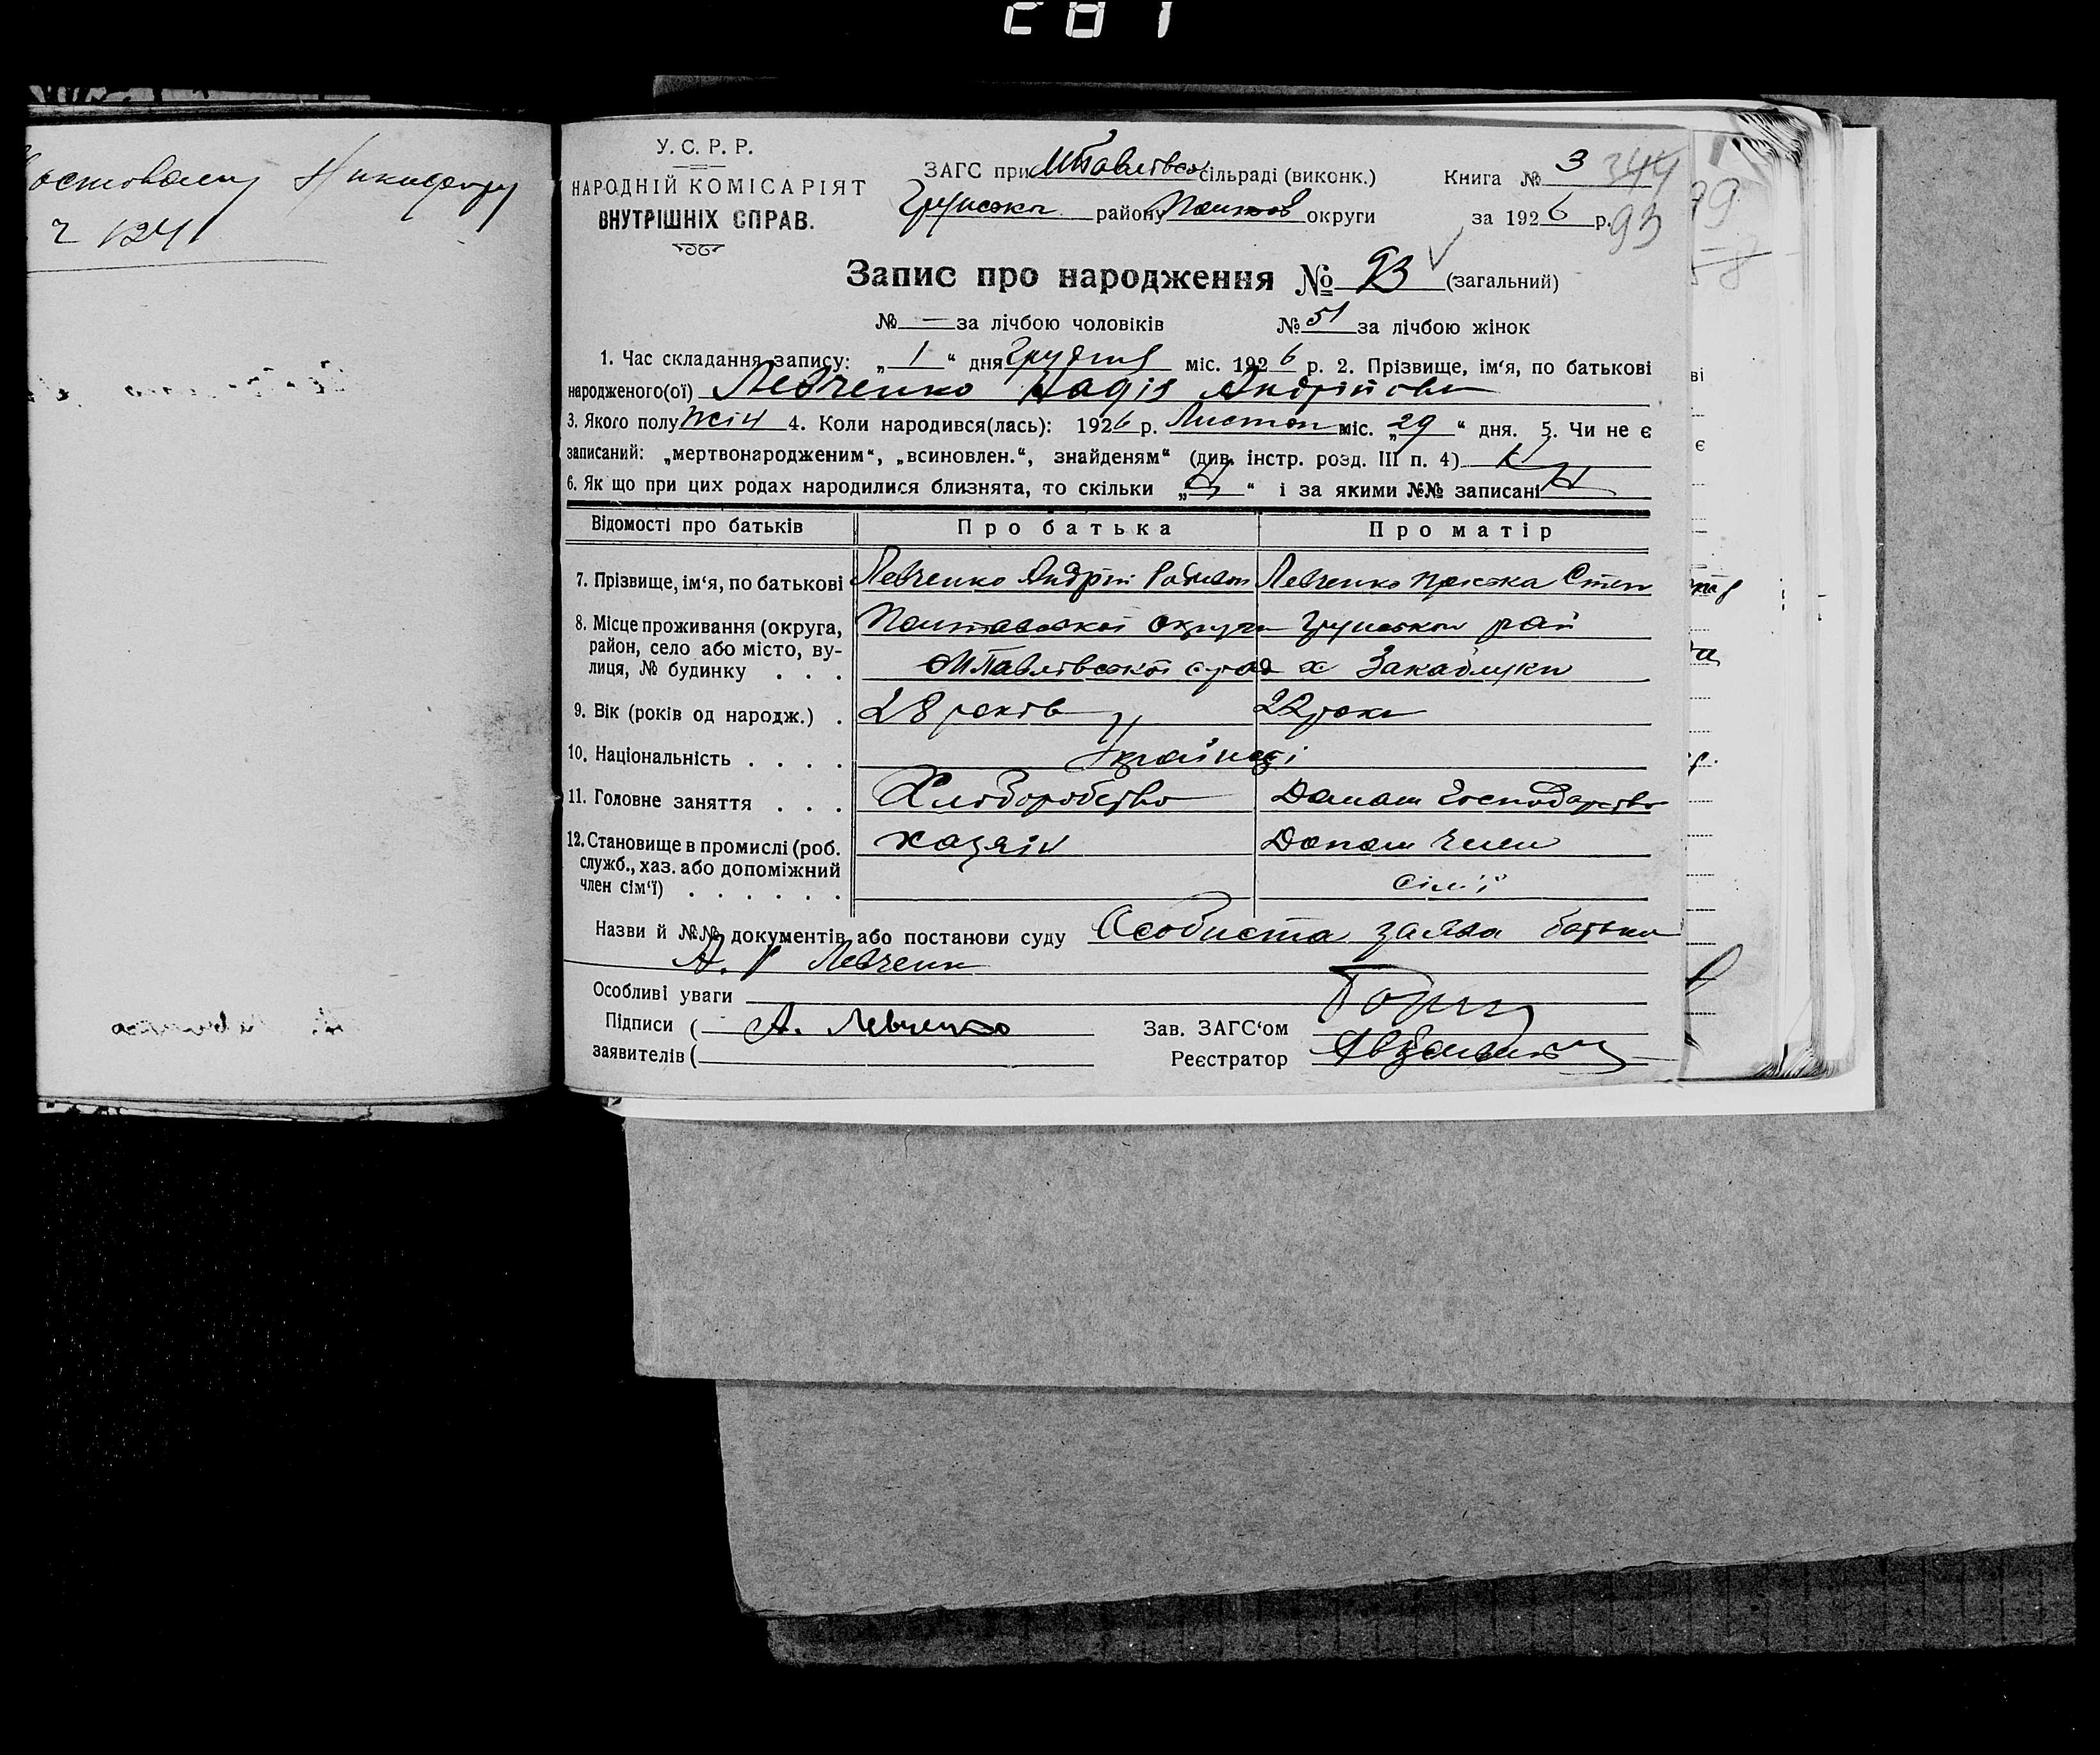 281
Никифору
ч 124
У. С. Р. Р.
НАРОДНІЙ КОМІСАРІЯТ
ВНУТРІШНІХ СПРАВ.
ЗАГС при МПавлівсь сільраді (виконк.)
району Полтав округи
Книга № 3 344
за 1926 р. 93
Запис про народження № 93 (загальний)
№ — за лічбою чоловіків № 51 за лічбою жінок
1. Час складання запису: „ 1 “ дня Грудня міс. 1926 р. 2. Прізвище, ім‘я, по батькові
народженого(ої) Левченко Надія Андрійовн
3. Якого полу жін 4. Коли народився(лась): 1926 р. Листоп міс. „29“ дня. 5. Чи не є
записаний: „мертвонародженим“, „всиновлен.“, знайденям“ (див. інстр. розд. III п. 4)
6. Як що при цих родах народилися близнята, то скільки „ “ і за якими №№ записані
Відомості про батьків Про батька Про матір
7. Прізвище, ім‘я, по батькові Левченко Андрій Левченко Степ
8. Місце проживання (округа, Полтавської округи рай
район, село або місто, ву- МПавлівської срад х Закаблуки
лиця, № будинку . . .
9. Вік (років од народж.) . 28 років 22 роки
10. Національність . . . . Українці
11. Головне заняття . . . Хліборобство Домаш Господарство
12. Становище в промислі (роб. хазяін Допом член
служб., хаз. або допоміжний сім'ї
член сім‘ї) . . . . . .
Назви й №№ документів або постанови суду Особиста заява батька
А. Р Левченк
Особливі уваги
Підписи ( А. Левченко Зав. ЗАГС‘ом
заявителів ( Реєстратор